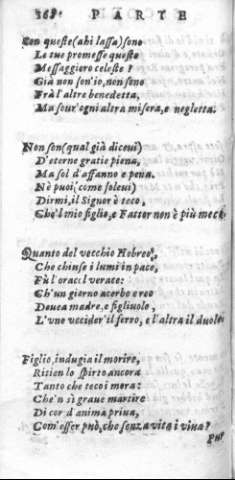 368 PARTE
Con queste (ahi lassa) sono
Le tue promesse queste
Messaggiero celeste?
Già non son'io, non sono
Frà l'altre benedetta,
Ma sour'ogni altra misera, e negletta.
Non son (qual già diceui)
D'eterne gratie piena,
Ma sol d'affanno e pena.
Nè puoi (come soleui)
Dirmi, il Signor è teco,
Che'l mio figlio, e Fattor non è più meco.
Quanto del vecchio Hebreo,
Che chinse i lumi in pace,
Fù l'oracol verace:
Ch'un giorno acerbo e reo
Deuea madre, e figliuolo,
L'vno vccider'il ferro, e l'altra il duolo
Figlio, indugia il morire,
Ritien lo spirto ancora
Tanto che teco i mora:
Che'n sì graue martire
Di cor d'anima priua,
Com'esser può, che senza vita i viua?
Pur